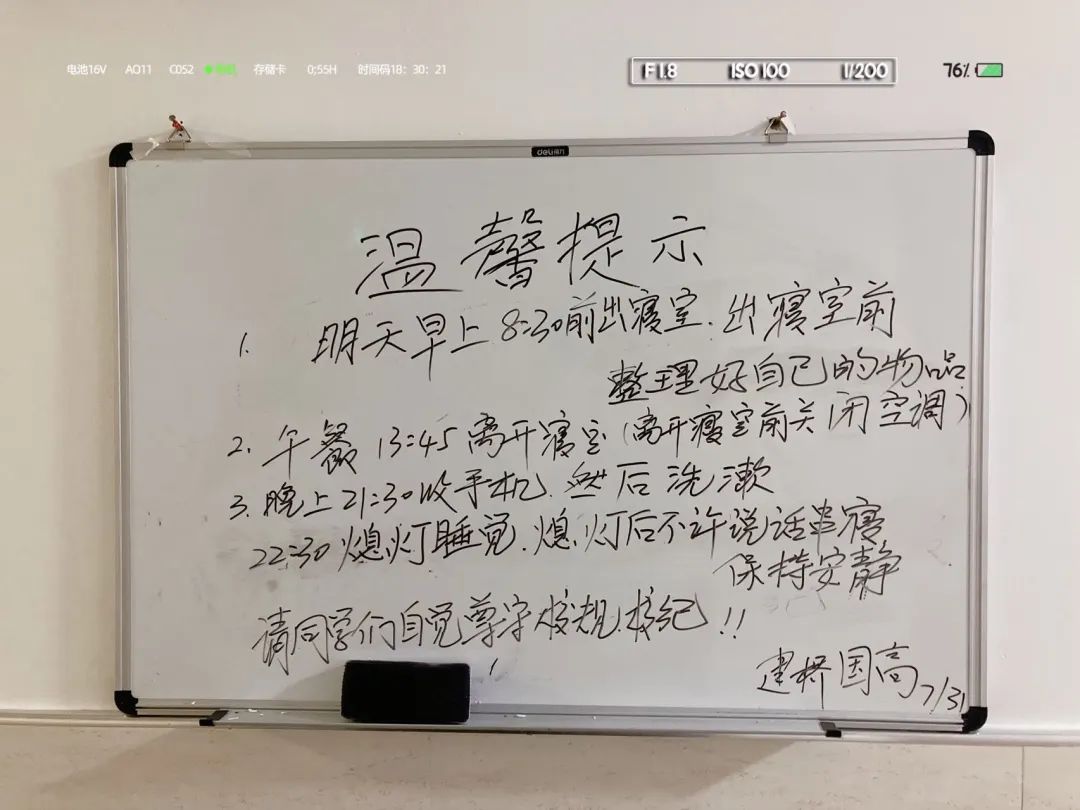 电池16V AO11 C052 存储卡 0;55H 时间码18：30：21
F1.8 ISO100 1/200 76%
deli得力
温馨提示
1. 明天早上8:30前出寝室.出寝室前
整理好自己的物品
2. 午餐 13:45 离开寝室(离开寝室前关闭空调)
3. 晚上21:30收手机.然后洗漱
22:30熄灯睡觉.熄灯后不许说话串寝
保持安静
请同学们自觉尊守校规.校纪!!
建桥国高 7/31